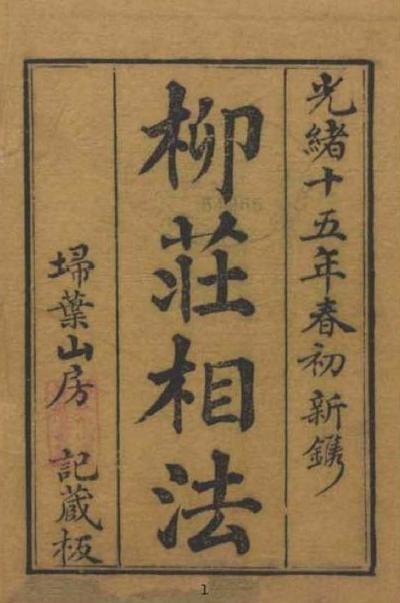 光緒十五年春初新鐫
柳莊相法
埽葉山房 記藏板
54866
1